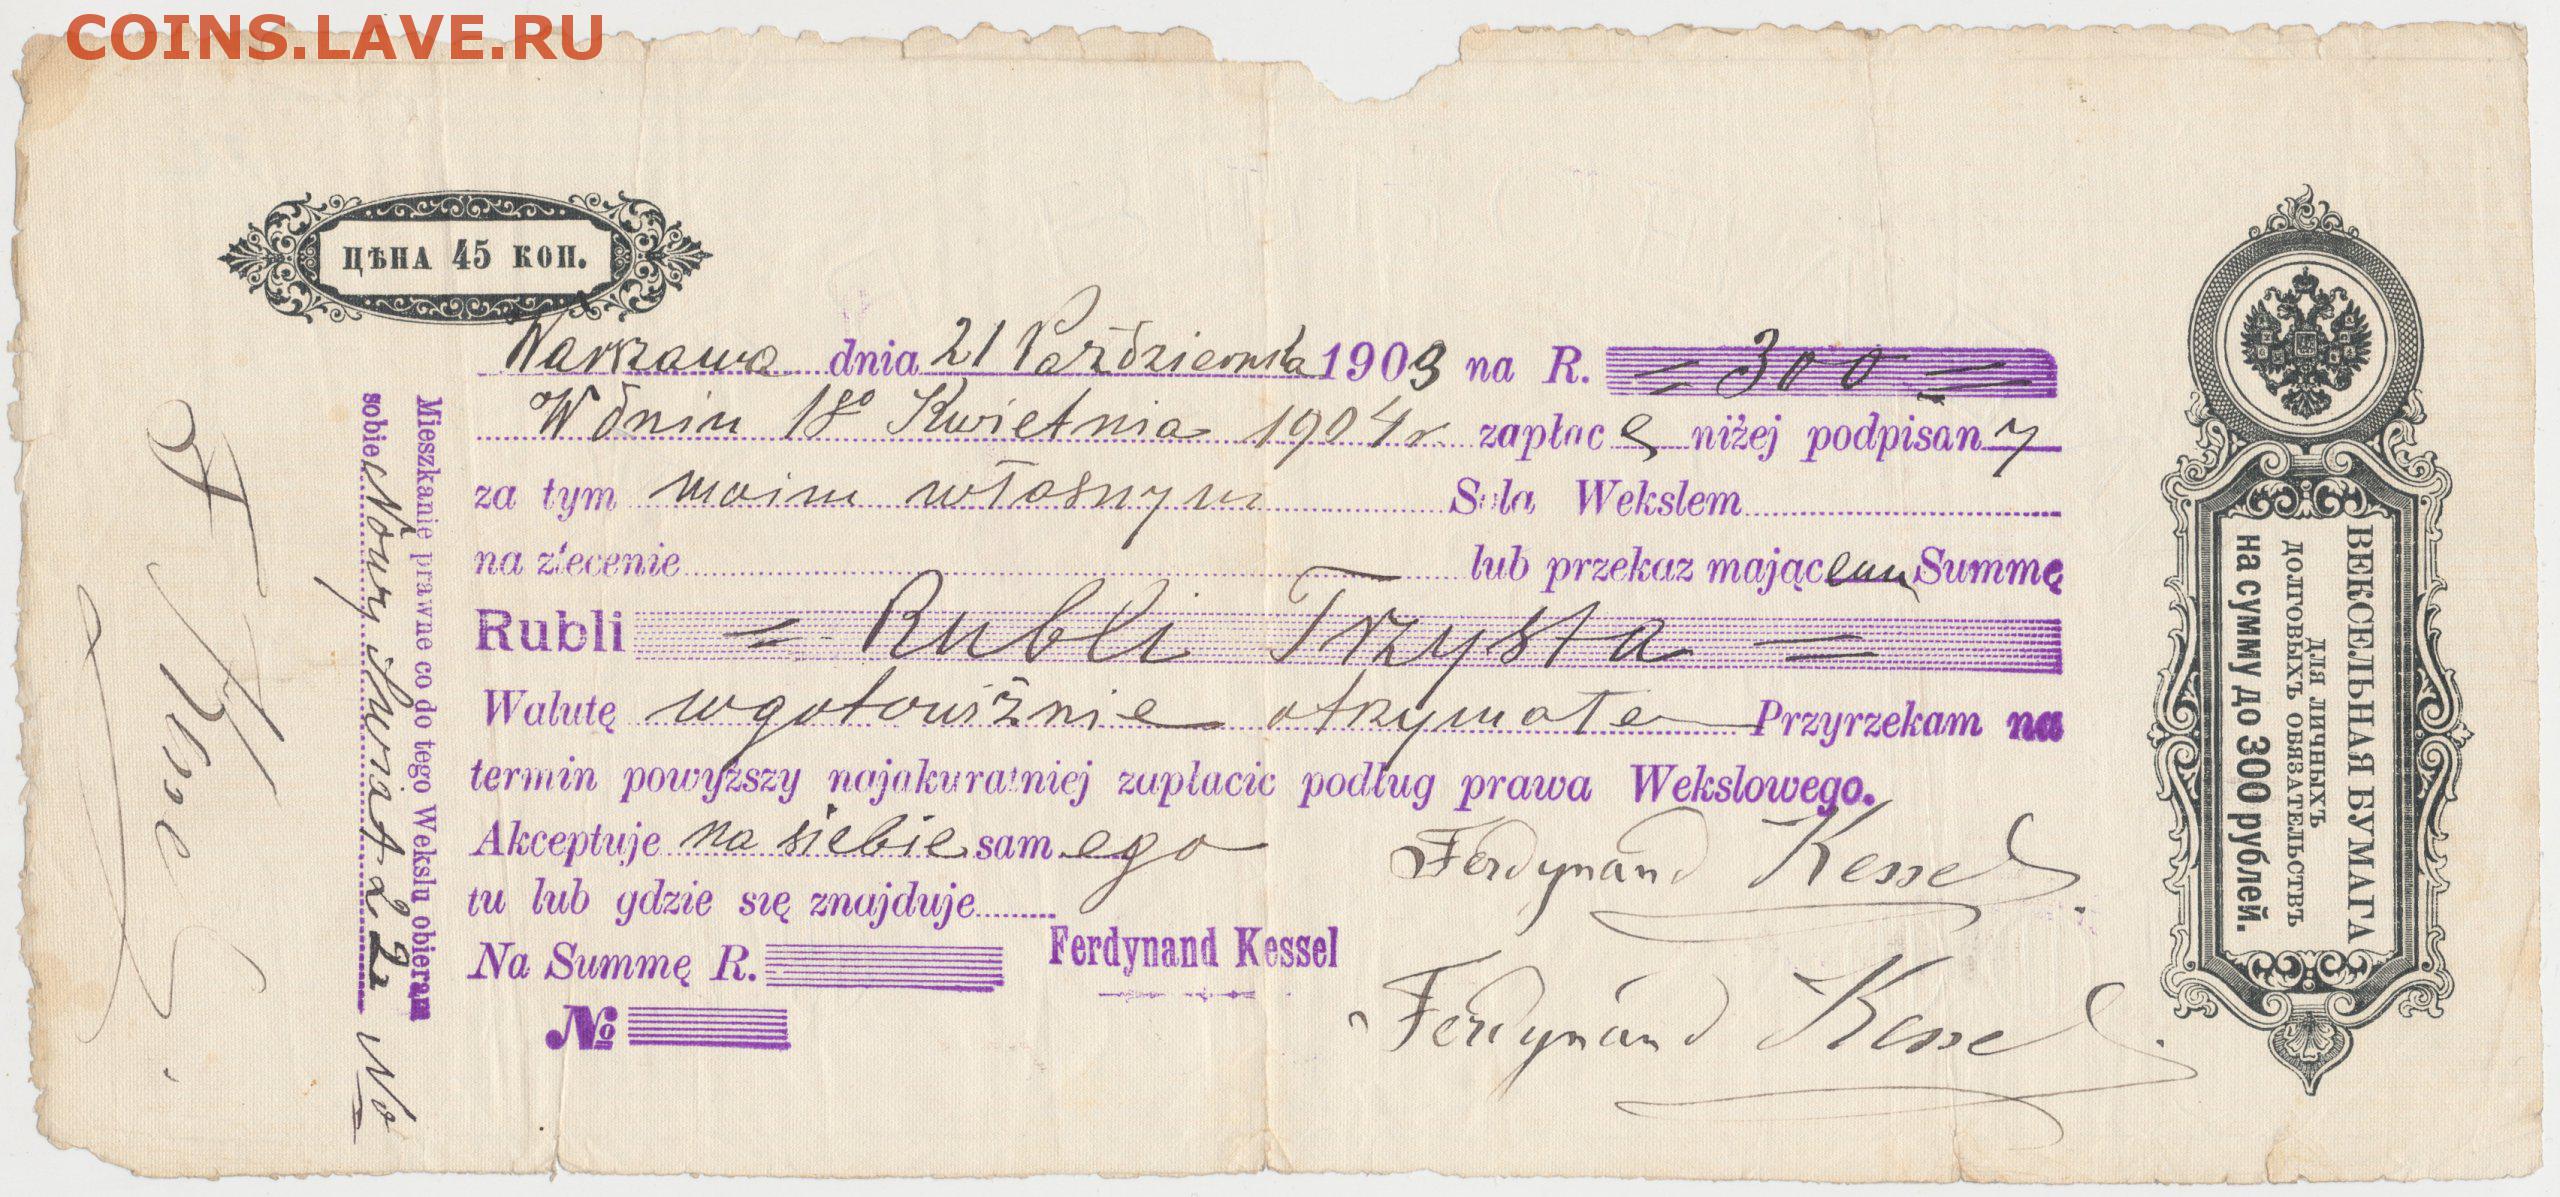 COINS.LAVE.RU
ЦѢНА 45 КОП.
Warszawa dnia 21 Października 1903 na R. = 300 =
W dniu 18º Kwietnia 1904 r. zapłacę niżej podpisany
za tym moim własnym Sola Wekslem
na zlecenie lub przekaz mającemu Summę
Rubli = Rubli Trzysta =
Walutę wgotowiźnie otrzymałem Przyrzekam na
termin powyższy najakuratniej zapłacic podług prawa Wekslowego.
Akceptuje na siebie samego
tu lub gdzie się znajduje
Na Summę R.
№
Ferdynand Kessel
Ferdynand Kessel
Ferdynand Kessel
Mieszkanie prawne co do tego Wekslu obieram
sobie Nowy Świat 22 No
F Kessel
ВЕКСЕЛЬНАЯ БУМАГА
ДЛЯ ЛИЧНЫХЪ
ДОЛГОВЫХЪ ОБЯЗАТЕЛЬСТВЪ
на сумму до 300 рублей.